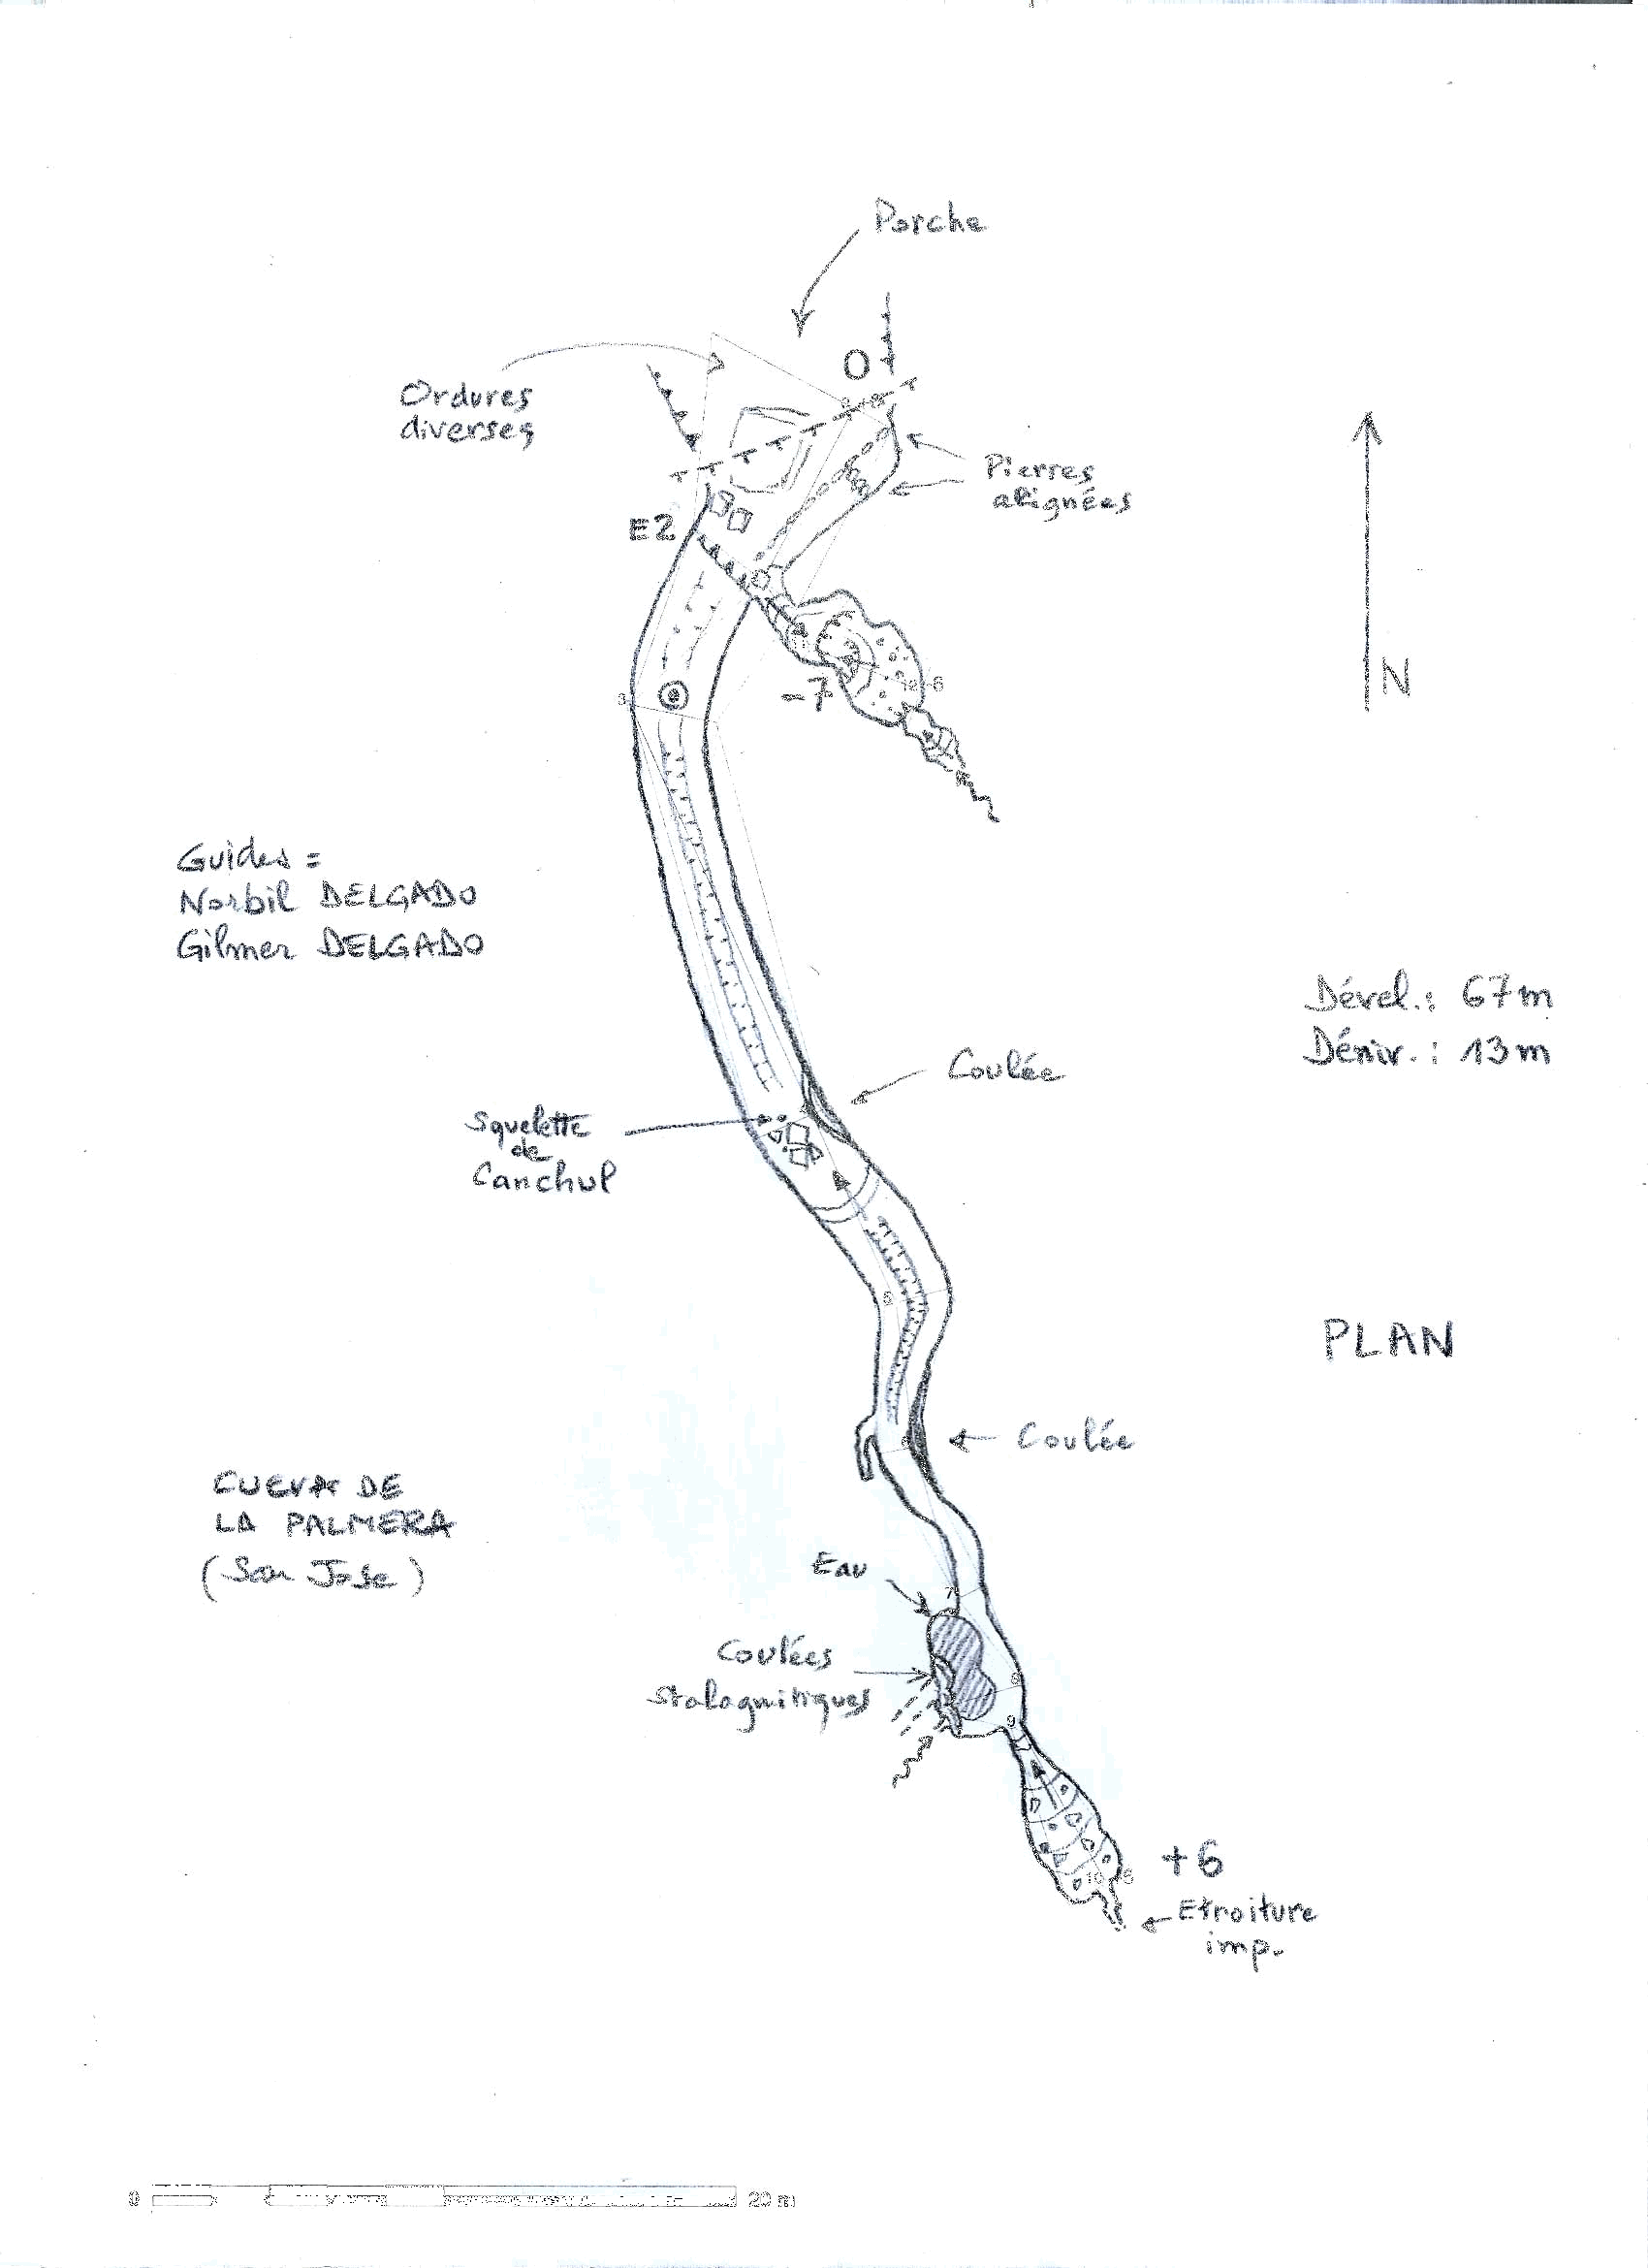 Porche
O
Ordures
diverses
Pierres
alignées
E2
-7
N
Guides =
Norbil DELGADO
Gilmer DELGADO
Dével.: 67m
Déniv.: 13m
Coulée
Squelette
de
Canchul
PLAN
Coulée
CUEVA DE
LA PALMERA
(San Jose)
Eau
Coulées
Stalagmitiques
+6
Etroiture
imp.
0 20 m